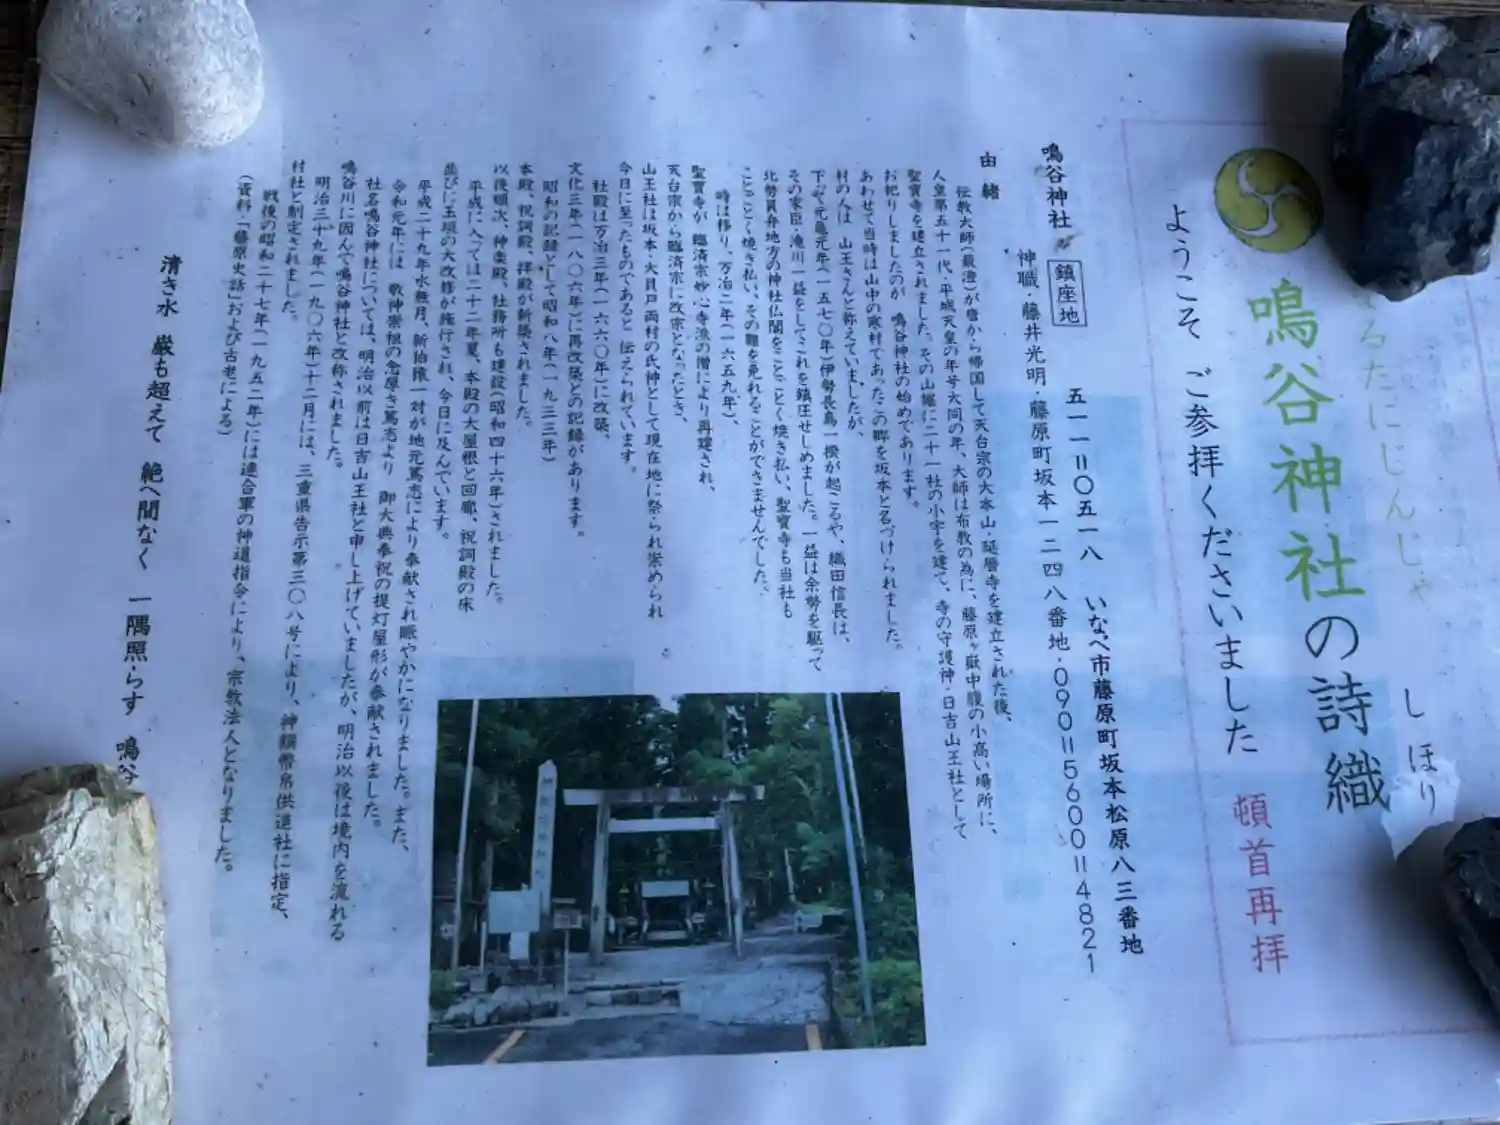 るたにじんじゃ
しほり
鳴谷神社の詩織
ようこそ ご参拝くださいました
頓首再拝
鳴谷神社 鎮座地 五一一=〇五一八 いなべ市藤原町坂本松原八三番地
神職・藤井光明・藤原町坂本一二四八番地・090=5600=4821
由緒
伝教大師(最澄)が唐から帰国して天台宗の大本山・延暦寺を建立された後、
人皇第五十一代・平城天皇の年号大同の年、大師は布教の為に、藤原ヶ嶽中腹の小高い場所に、
聖寳寺を建立されました。その山麓に二十一社の小宇を建て、寺の守護神・日吉山王社として
お祀りしましたのが 鳴谷神社の始めであります。
あわせて当時は山中の寒村であったこの郷を坂本と名づけられました。
村の人は 山王さんと称えていましたが、
下って元亀元年(一五七〇年)伊勢長島一揆が起こるや、織田信長は、
その家臣・滝川一益をしてこれを鎮圧せしめました。一益は余勢を駆って
北勢員弁地方の神社仏閣をことごとく焼き払い、聖寳寺も当社も
ことごとく焼き払い、その難を免れることができませんでした。
時は移り、万治二年(一六五九年)、
聖寳寺が 臨済宗妙心寺派の僧により再建され、
天台宗から臨済宗に改宗となったとき、
山王社は坂本・大貝戸両村の氏神として現在地に祭られ崇められ
今日に至ったものであると 伝えられています。
社殿は万治三年(一六六〇年)に改築、
文化三年(一八〇六年)に再改築との記録があります。
昭和の記録として昭和八年(一九三三年)
本殿、祝詞殿、拝殿が新築されました。
以後順次、神楽殿、社務所も建設(昭和四十六年)されました。
平成に入っては二十二年夏、本殿の大屋根と回廊、祝詞殿の床
並びに玉垣の大改修が施行され、今日に及んでいます。
平成二十九年水無月、新狛犬一対が地元篤志により奉献され賑やかになりました。また、
令和元年には 敬神崇祖の念厚き篤志より 御大典奉祝の提灯屋形が奉献されました。
社名鳴谷神社については、明治以前は日吉山王社と申し上げていましたが、明治以後は境内を流れる
鳴谷川に因んで鳴谷神社と改称されました。
明治三十九年(一九〇六年)十二月には、三重県告示第三〇八号により、神饌幣帛供進社に指定、
村社と制定されました。
戦後の昭和二十七年(一九五二年)には連合軍の神道指令により、宗教法人となりました。
(資料・「藤原史話」および古老による)
清き水 巌も超えて 絶へ間なく 一隅照らす 鳴谷